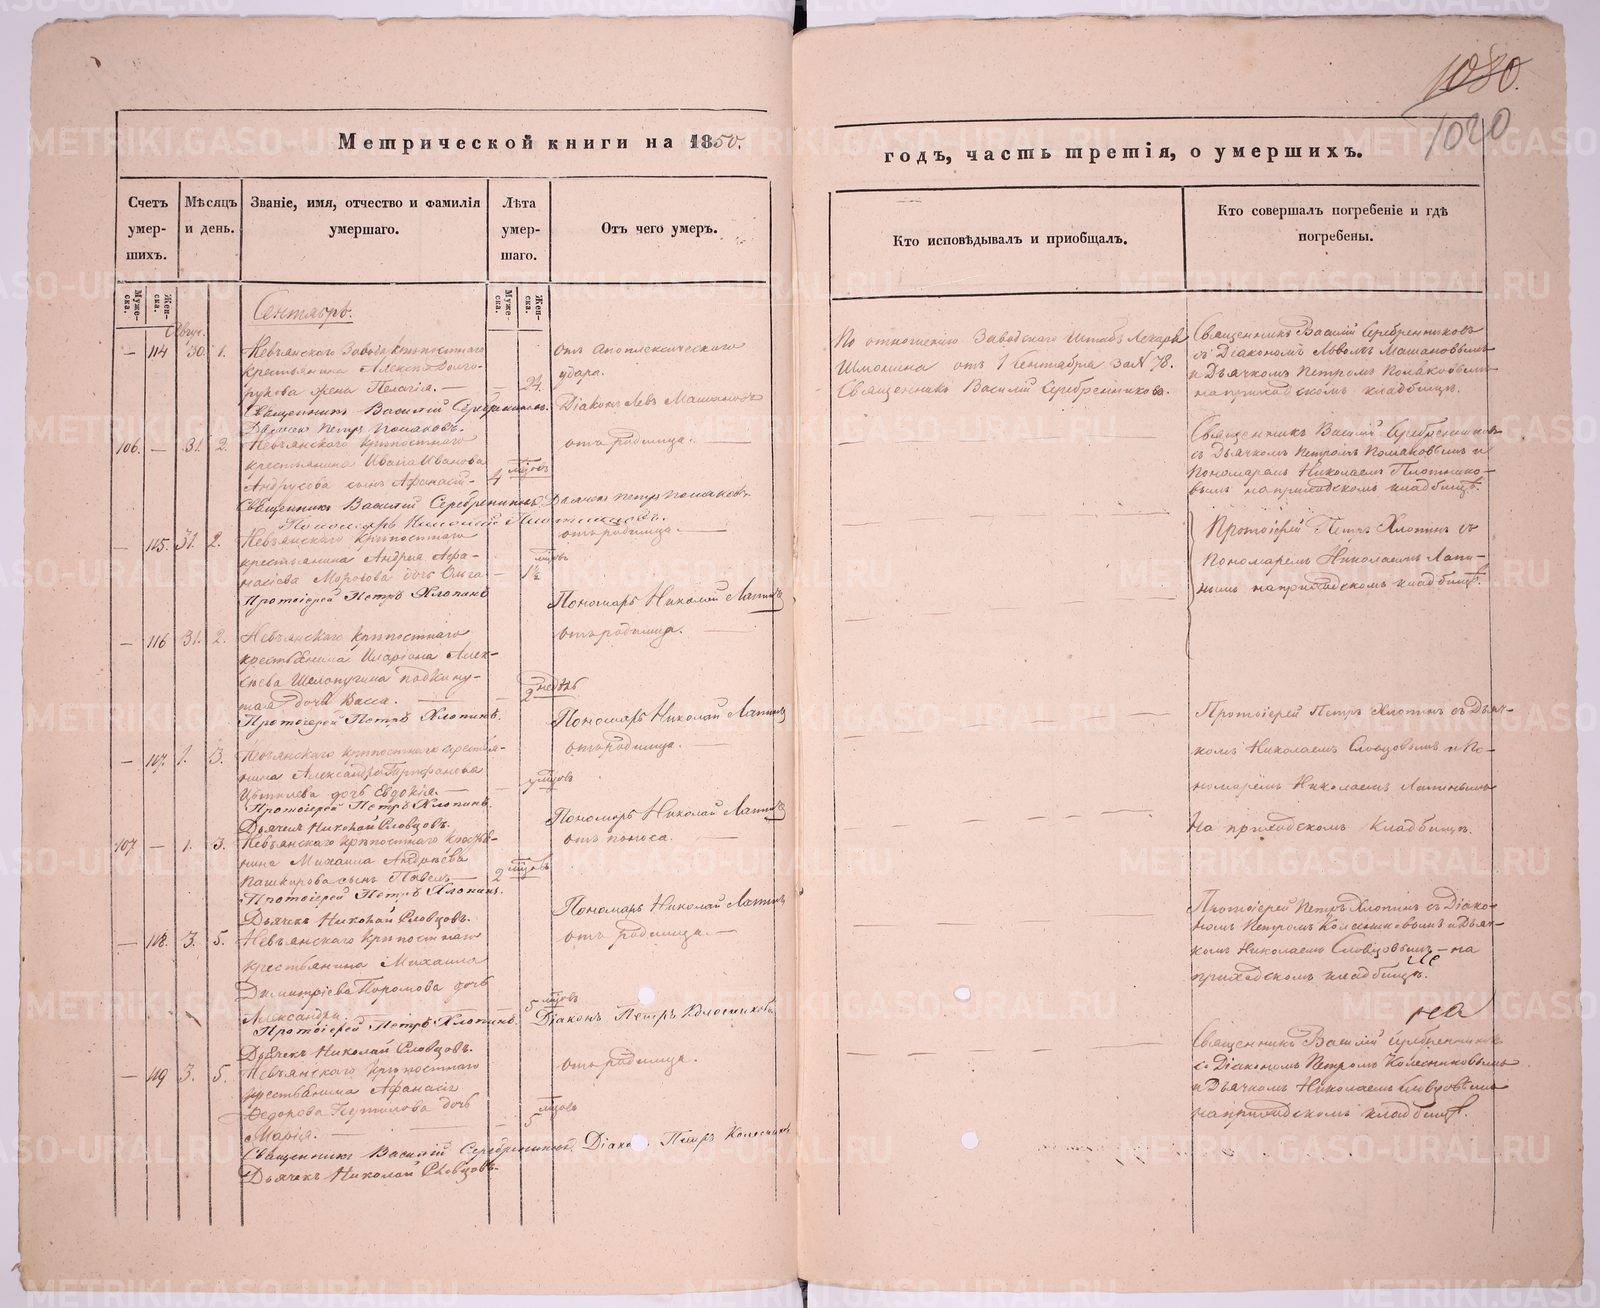 1080.
1040
Метрической книги на 1850.
годъ, часть третія, о умершихъ.
Счетъ умер-шихъ.
Мѣсяцъ и день.
Званіе, имя, отчество и фамилія умершаго.
Лѣта умер-шаго.
Отъ чего умеръ.
Кто исповѣдывалъ и пріобщалъ.
Кто совершалъ погребеніе и гдѣ погребены.
Муже-ска.
Жен-ска.
Муже-ска.
Жен-ска.
Сентябрь.
Август.
— 114 30. 1.
Невьянского Завода крѣпостнаго
крестьянина Алексѣя Долго-
рукова жена Пелагія. —
— 24.
отъ апоплексическаго
удара.
По отношенію Заводскаго Штабъ Лекаря
отъ 1 Сентября за № 78.
Священникъ Василій Серебренниковъ.
Священникъ Василій Серебренниковъ
съ Діакономъ Львомъ Машановымъ
и Дьячкомъ Петромъ Поляковымъ
на приходскомъ кладбищѣ.
Священникъ Василій Серебренниковъ. Діаконъ Левъ Машановъ
Дьячекъ Петръ Поляковъ.
106. — 31. 2.
Невьянскаго крѣпостнаго
крестьянина Ивана Иванова
сынъ Афанасій —
4 мцовъ
отъ родимца. —
Священникъ Василій Серебренниковъ
съ Дьячкомъ Петромъ Поляковымъ и
Пономаремъ Николаемъ Плотнико-
вымъ на приходскомъ кладбищѣ.
Священникъ Василій Серебренниковъ. Дьячекъ Петръ Поляковъ
Пономарь Николай Плотниковъ.
— 115. 31. 2.
Невьянскаго крѣпостнаго
крестьянина Андрея Афа-
насіева Морозова дочь Ольга —
мцовъ
1½
отъ родимца. —
Протоіерей Петръ Хлопинъ съ
Пономаремъ Николаемъ Лапи-
нымъ на приходскомъ кладбищѣ.
Протоіерей Петръ Хлопинъ
Пономарь Николай Лапинъ
— 116 31. 2.
Невьянскаго крѣпостнаго
крестьянина Иларіона Алек-
сѣева Шелопугина подкину-
тая дочь Васса. —
2 недѣль
отъ родимца. —
Протоіерей Петръ Хлопинъ.
Пономарь Николай Лапинъ
— 117. 1. 3.
Невьянскаго крѣпостнаго крестья-
нина Александра
дочь Евдокія. —
мцовъ
отъ родимца. —
Протоіерей Петръ Хлопинъ съ Дьяч-
комъ Николаемъ Словцовымъ и По-
номаремъ Николаемъ Лапинымъ
На приходскомъ кладбищѣ.
Протоіерей Петръ Хлопинъ.
Дьячекъ Николай Словцовъ.
Пономарь Николай Лапинъ
107 — 1. 3.
Невьянскаго крѣпостнаго крестья-
нина Михаила Андреева
Пашкирова сынъ Павелъ —
2 мцовъ
отъ поноса. —
Протоіерей Петръ Хлопинъ.
Дьячекъ Николай Словцовъ.
Пономарь Николай Лапинъ
— 118. 3. 5.
Невьянскаго крѣпостнаго
крестьянина Михаила
Димитріева дочь
Александра. —
5 мцовъ
отъ родимца. —
Протоіерей Петръ Хлопинъ съ Діако-
номъ Петромъ Колесниковымъ и Дьяч-
комъ Николаемъ Словцовымъ — на
приходскомъ кладбищѣ.
Протоіерей Петръ Хлопинъ. Діаконъ Петръ Колесниковъ
Дьячекъ Николай Словцовъ.
— 119 3. 5.
Невьянскаго крѣпостнаго
крестьянина Афанасія
Федорова Путилова дочь
Марія. —
5 мцовъ
отъ родимца.
Священникъ Василій Серебренниковъ
съ Діакономъ Петромъ Колесниковымъ
и Дьячкомъ Николаемъ Словцовымъ
на приходскомъ кладбищѣ.
Священникъ Василій Серебренниковъ. Діаконъ Петръ Колесниковъ
Дьячекъ Николай Словцовъ.
METRIKI.GASO-URAL.RU